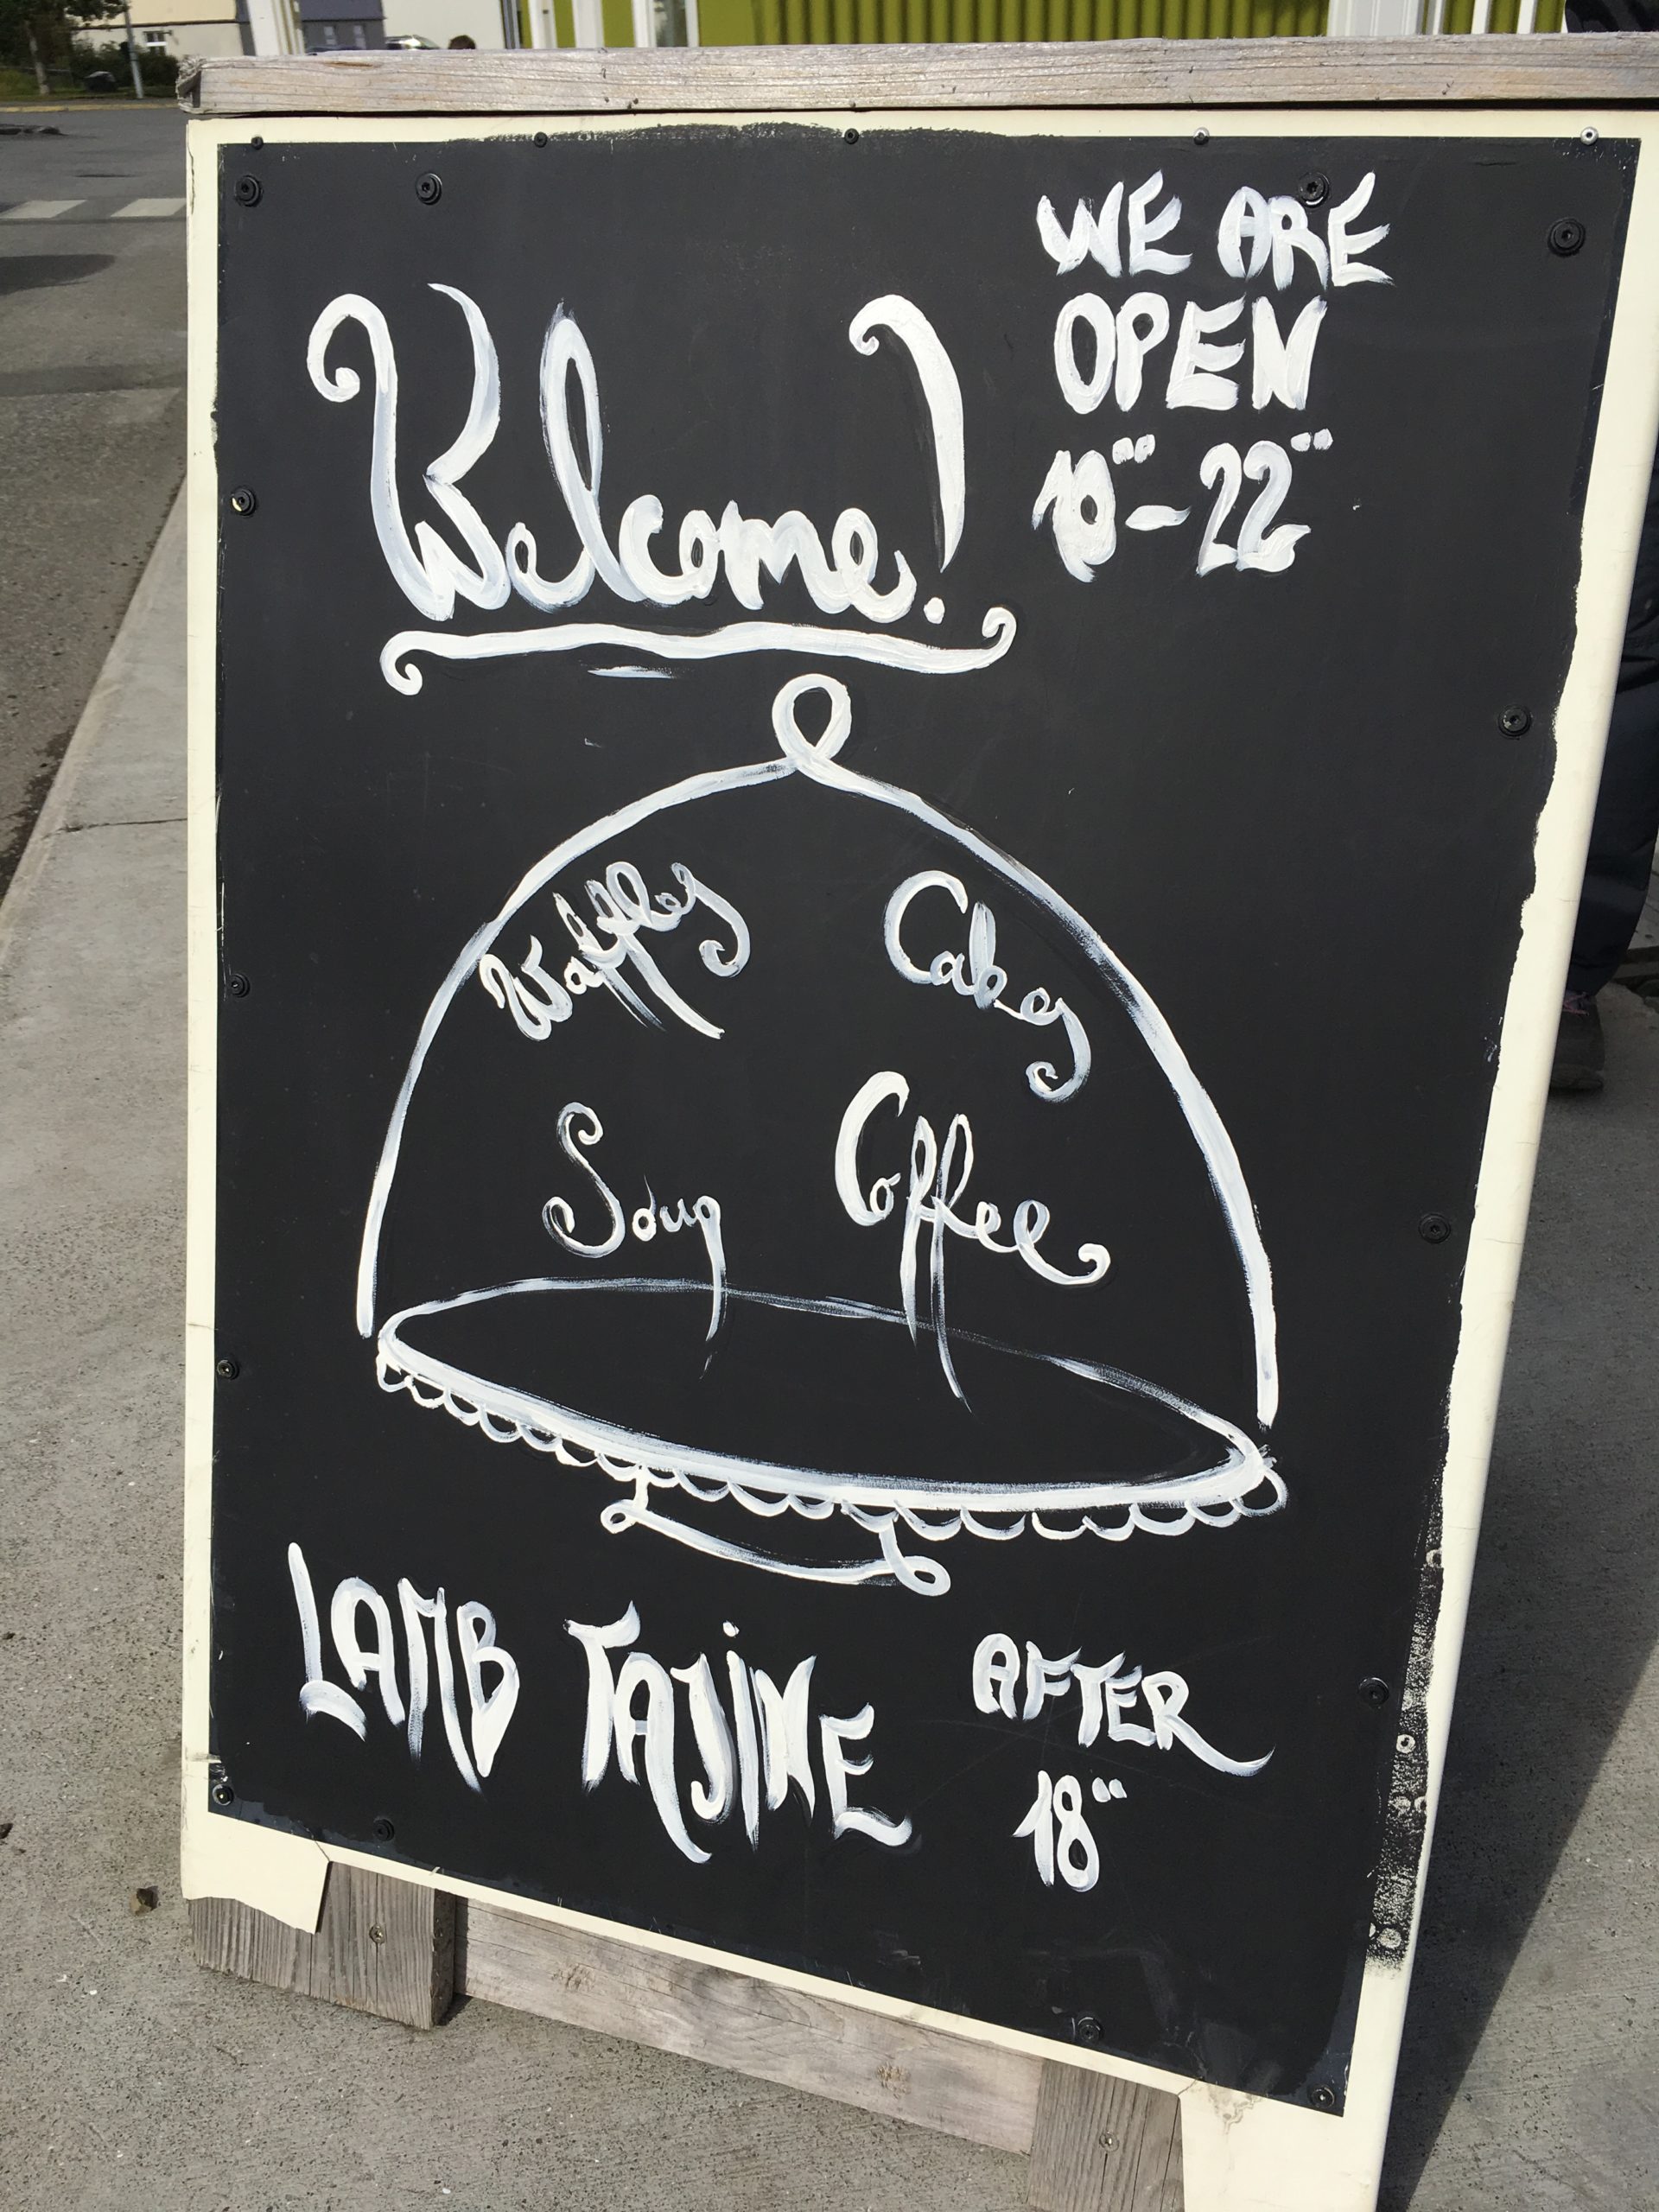 Welcome!
WE ARE
OPEN
10°° - 22°°
Waffles
Cakes
Soup
Coffee
LAMB TAJINE
AFTER
18°°